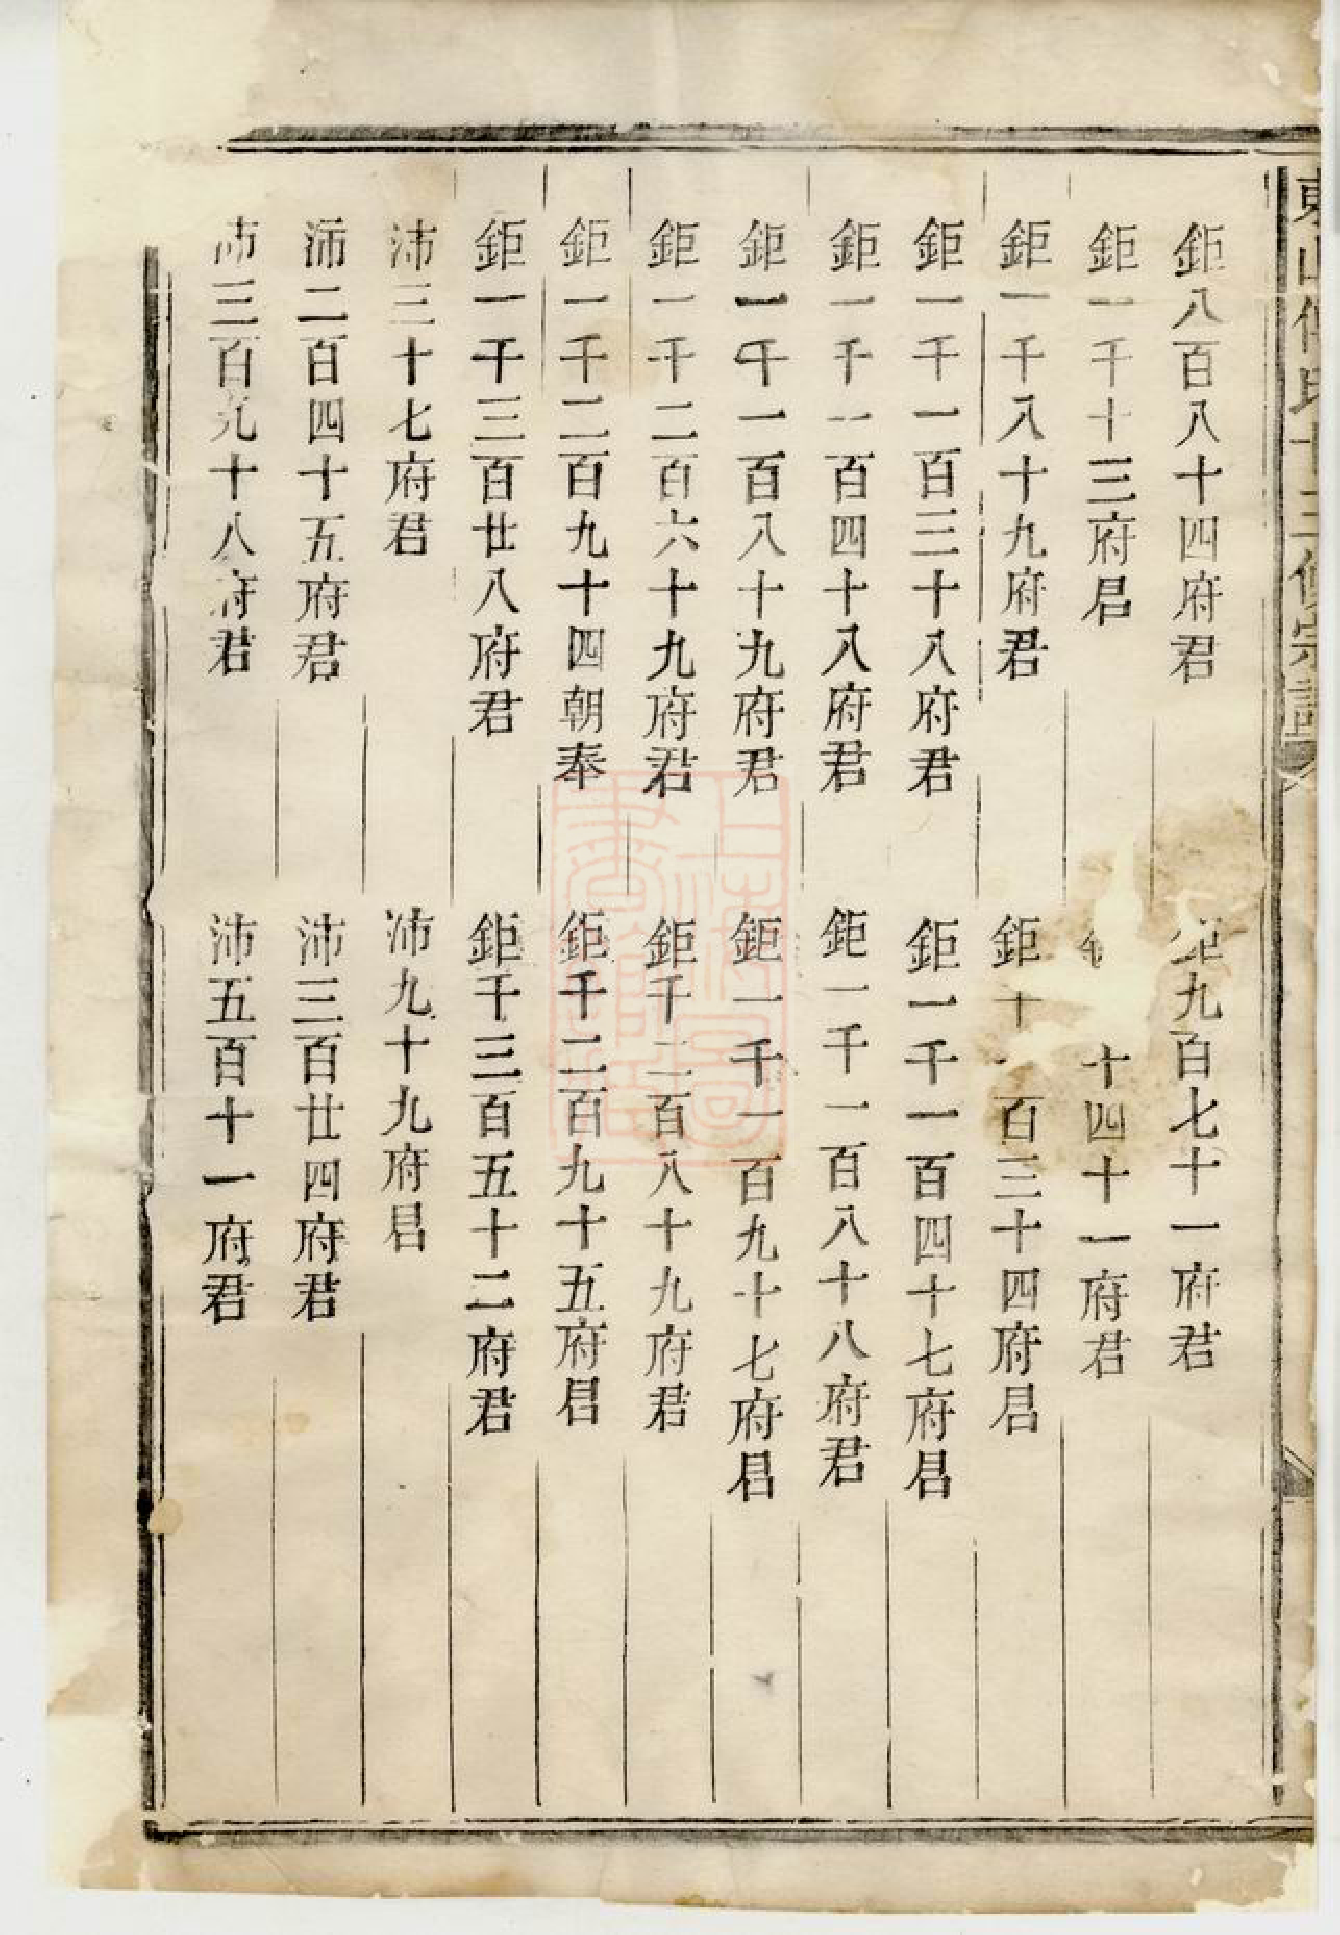 鉅八百八十四府君 鉅九百七十一府君
鉅一千十三府君 十四十一府君
鉅一千八十九府君 鉅千一百三十四府君
鉅一千一百三十八府君 鉅一千一百四十七府君
鉅一千一百四十八府君 鉅一千一百八十八府君
鉅一千一百八十九府君 鉅一千一百九十七府君
鉅一千二百六十九府君 鉅千二百八十九府君
鉅一千二百九十四朝奉 鉅千二百九十五府君
鉅一千三百廿八府君 鉅千三百五十二府君
沛三十七府君 沛九十九府君
沛二百四十五府君 沛三百廿四府君
沛三百九十八府君 沛五百十一府君